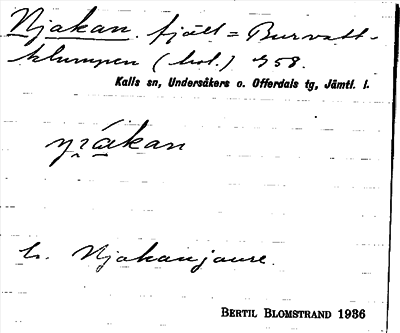 Njakan. fjäll = Burvatt-
klumpen (hol.) 958.
Kalls sn, Undersåkers o. Offerdals tg, Jämtl. l.
Njakanjaure.
BERTIL BLOMSTRAND 1936